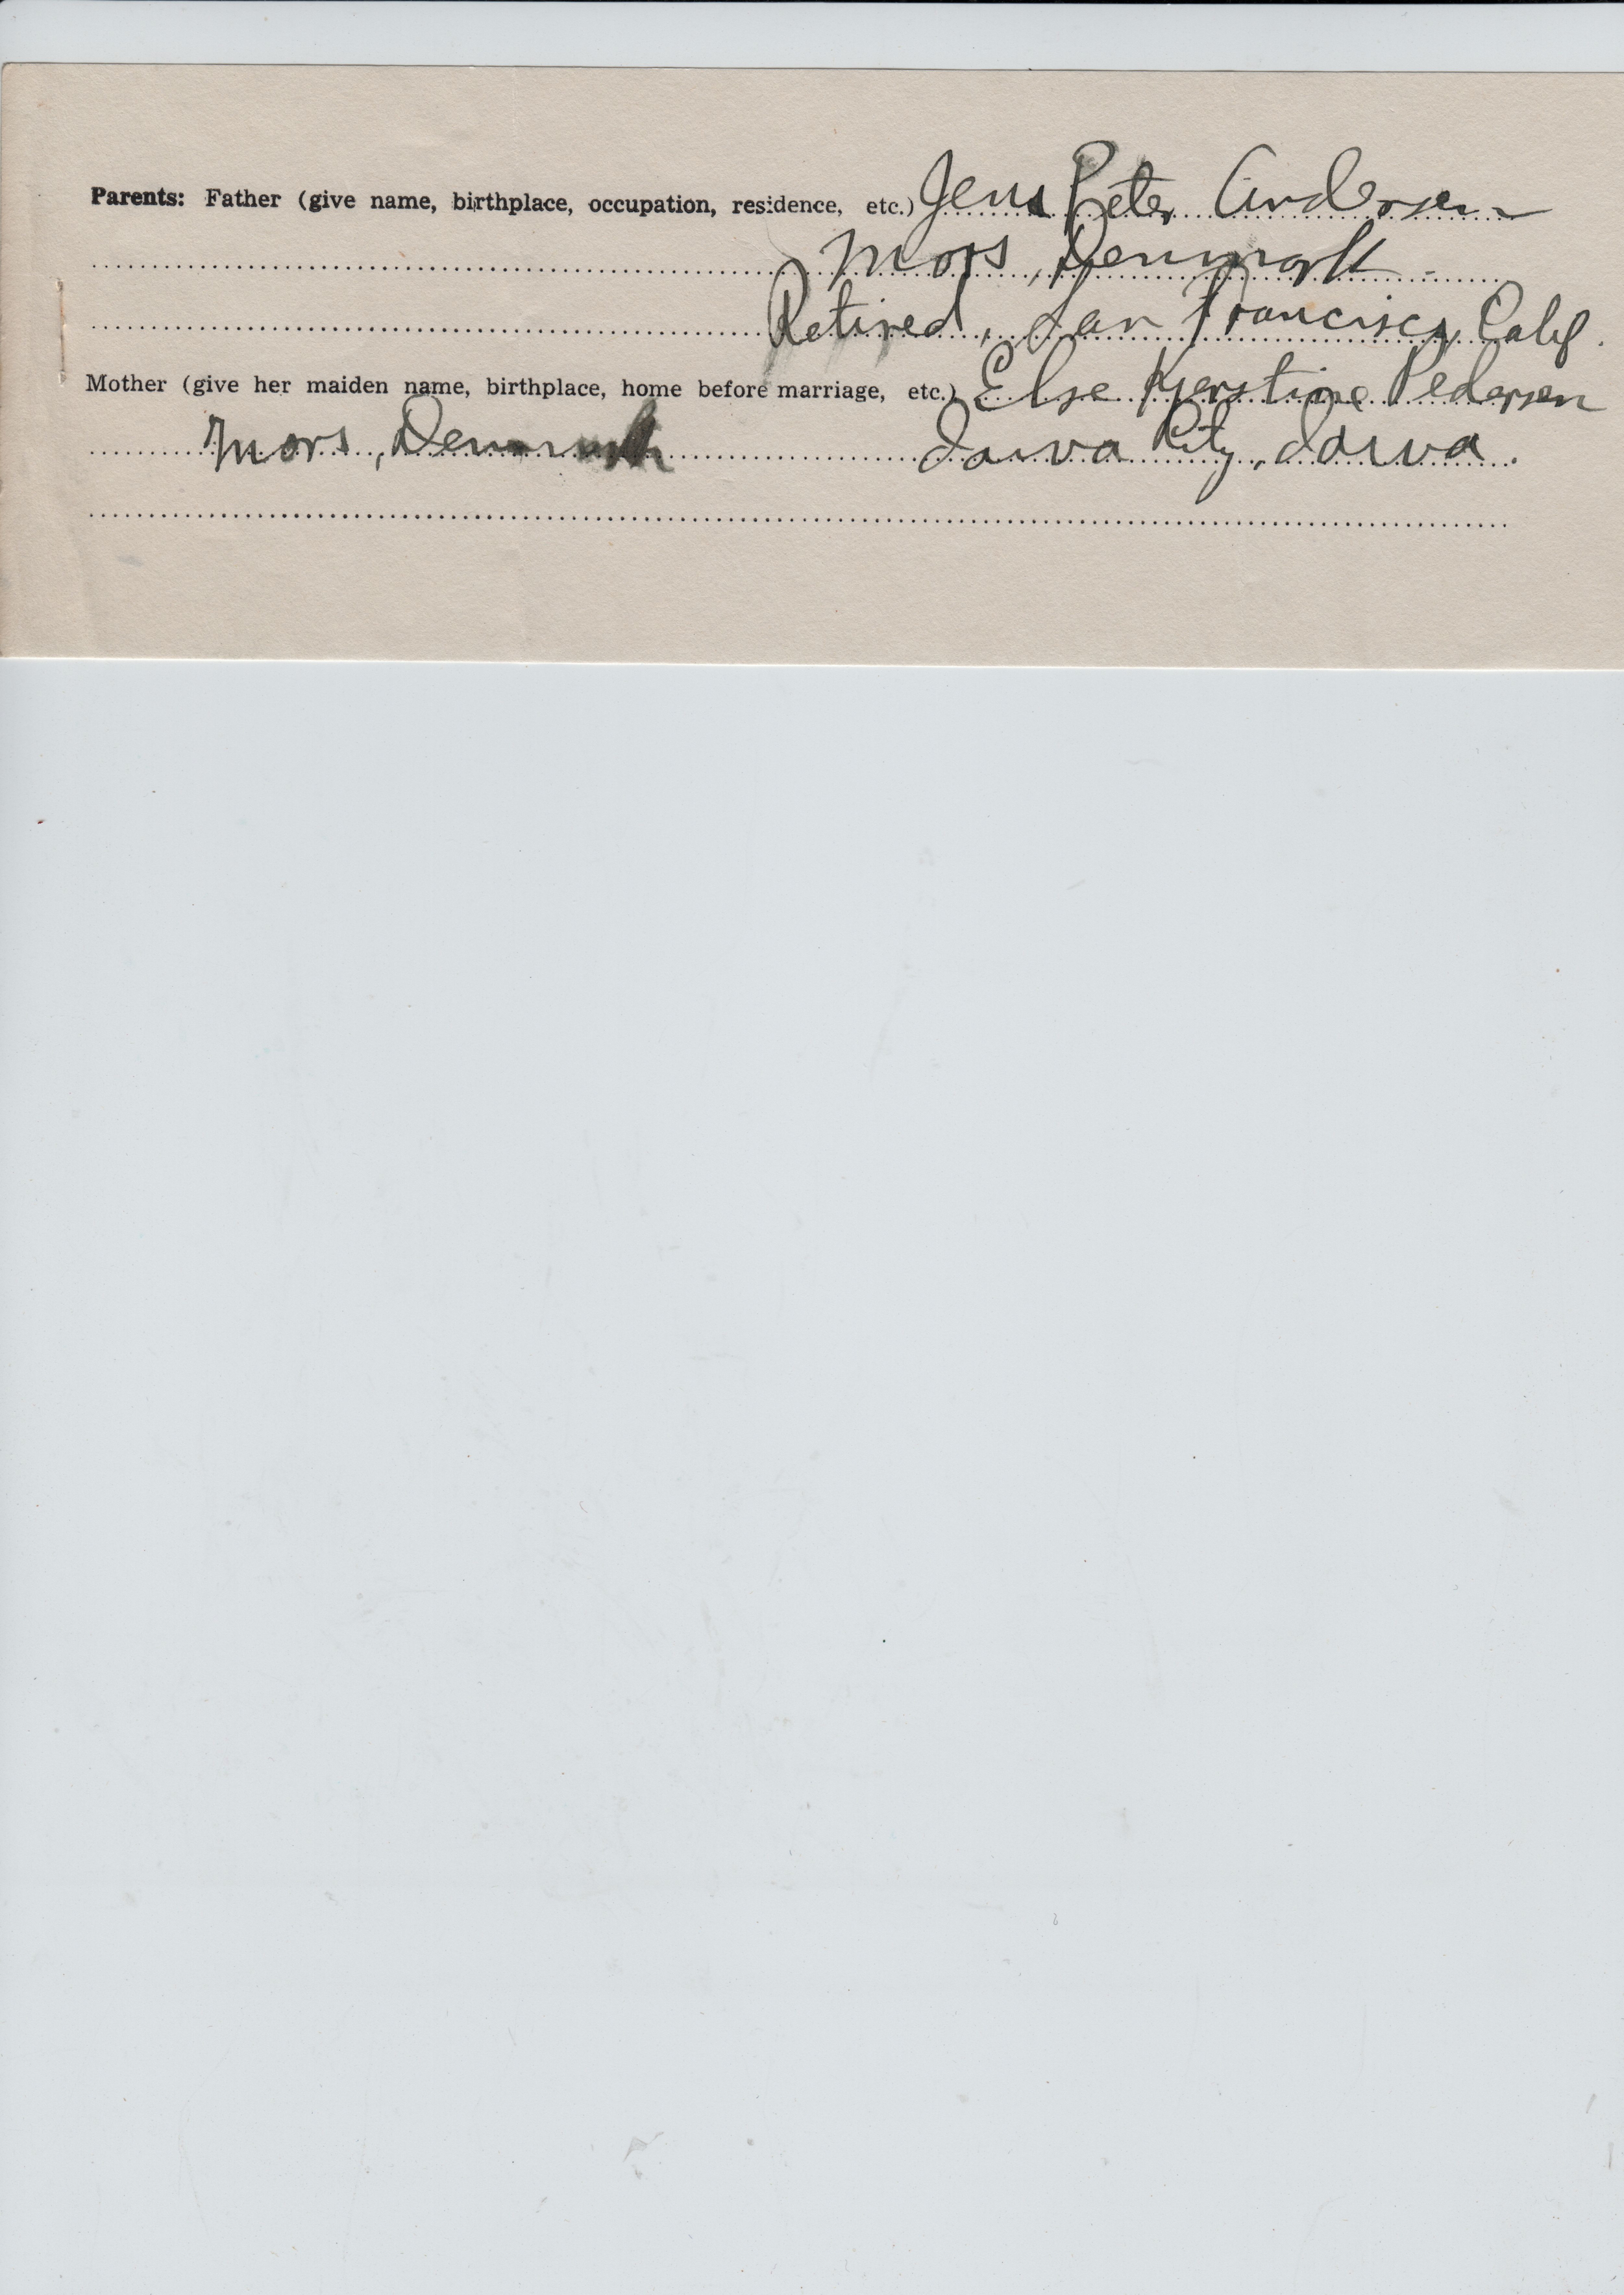 Parents: Father (give name, birthplace, occupation, residence, etc.) Jens Peter Andersen
Mors, Denmark
Retired, San Francisco, Calif.
Mother (give her maiden name, birthplace, home before marriage, etc.) Else Kjerstine Pedersen
Mors, Denmark Iowa City, Iowa.